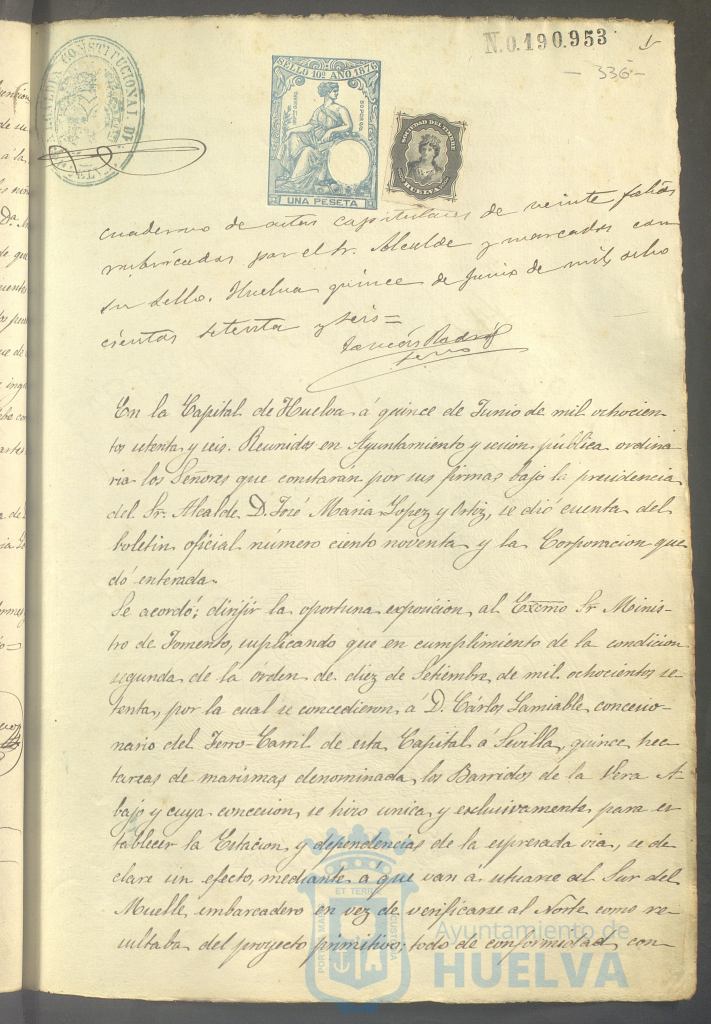 N.0.190.953
- 336 -
ALCALDIA CONSTITUCIONAL DE
SELLO 10º AÑO 1876
UNA PESETA
SOCIEDAD DEL TIMBRE
HUELVA
Cuaderno de actas capitulares de veinte folios
rubricadas por el Sr. Alcalde y marcados con
su sello. Huelva quince de Junio de mil ocho
cientos setenta y seis=
En la Capital de Huelva á quince de Junio de mil ochocien-
tos setenta y seis. Reunidos en Ayuntamiento y sesion pública ordina
ria los Señores que constarán por sus firmas bajo la presidencia
del Sr. Alcalde D. José Maria Lopez y Ortiz, se dió cuenta del
boletin oficial número ciento noventa y la Corporacion que
dó enterada.
Se acordó: dirijir la oportuna exposicion al Excmo Sr Minis-
tro de Fomento, suplicando que en cumplimiento de la condicion
segunda de la órden de diez de Setiembre de mil ochocientos se
tenta, por la cual se concedieron á D. Cárlos Lamiable concesio-
nario del Ferro-Carril de esta Capital á Sevilla, quince hec
tareas de marismas denominada los Barridos de la Vera A-
bajo y cuya concesion se hizo unica y exclusivamente para es
tablecer la Estacion y dependencias de la espresada via, se de
clare sin efecto, mediante á que van á situarse al Sur del
Muelle embarcadero en vez de verificarse al Norte como re-
sultaba del proyecto primitivo; todo de conformidad con
Ayuntamiento de
HUELVA